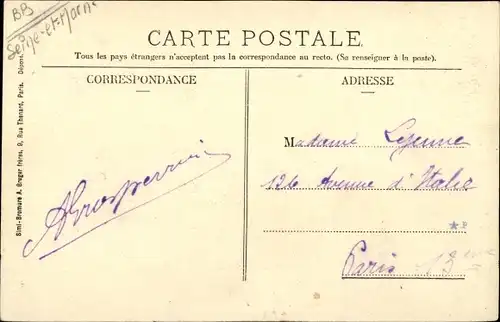 BB
Seine-et-Marne
CARTE POSTALE
Tous les pays étrangers n'acceptent pas la correspondance au recto. (Se renseigner à la poste).
CORRESPONDANCE
ADRESSE
Madame Lejeune
126 Avenue d'Italie
Paris 13eme
Simi-Bromure A. Breger frères, 9, Rue Thénard, Paris.